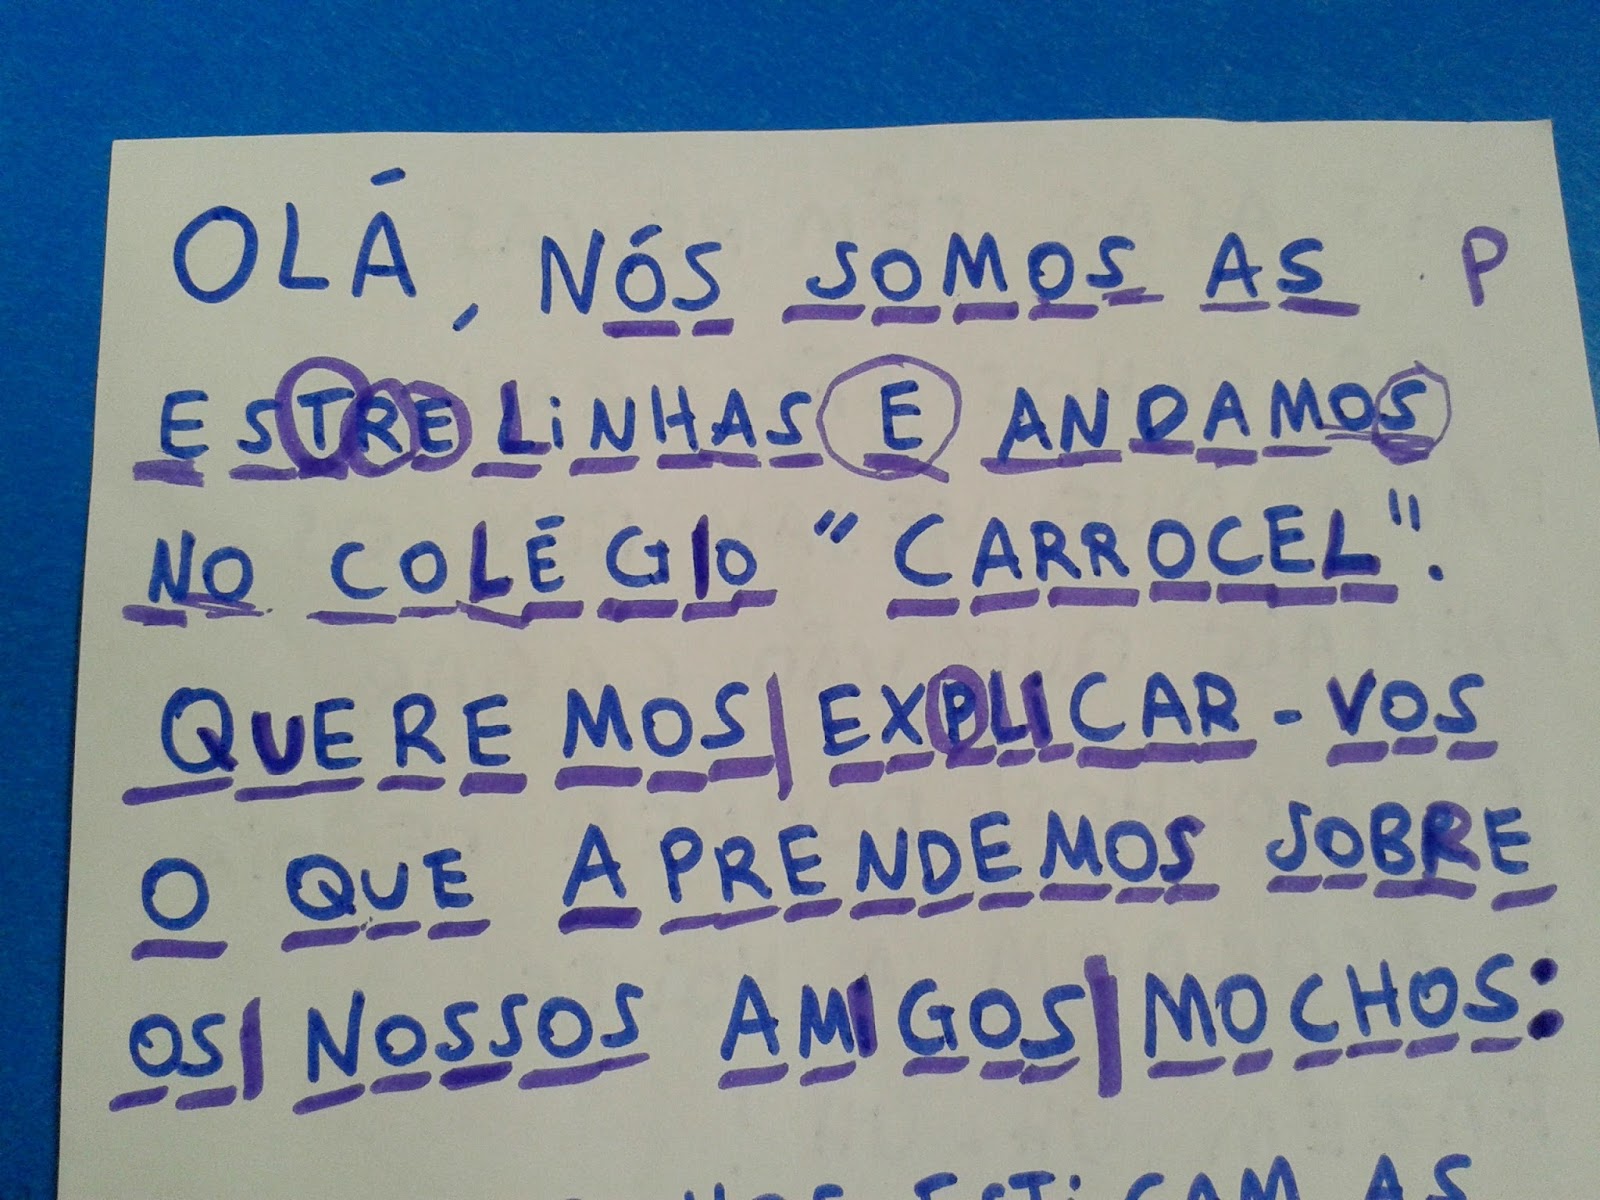 OLÁ, NÓS SOMOS AS P
ESTRELINHAS E ANDAMOS
NO COLÉGIO "CARROCEL".
QUEREMOS|EXPLICAR-VOS
O QUE APRENDEMOS SOBRE
OS|NOSSOS AMIGOS|MOCHOS:
ESTICAM AS